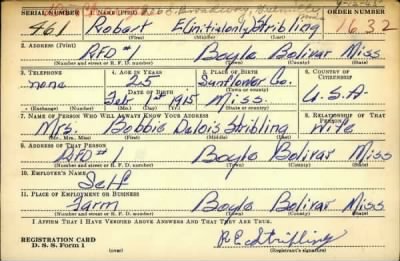 SERIAL NUMBER 1. NAME (Print) ORDER NUMBER
461 Robert E(Initial only) Stribling 1632
(First) (Middle) (Last)
2. ADDRESS (Print)
RFD #1 Boyle Bolivar Miss
(Number and street or R. F. D. number) (Town) (County) (State)
3. TELEPHONE 4. AGE IN YEARS 5. PLACE OF BIRTH 6. COUNTRY OF CITIZENSHIP
none 25 Sunflower Co.
DATE OF BIRTH (Town or county)
Feb 1st 1915 Miss. U.S.A.
(Exchange) (Number) (Mo.) (Day) (Yr.) (State or country)
7. NAME OF PERSON WHO WILL ALWAYS KNOW YOUR ADDRESS 8. RELATIONSHIP OF THAT PERSON
Mrs. Bobbie Dalois Stribling Wife
(Mr., Mrs., Miss) (First) (Middle) (Last)
9. ADDRESS OF THAT PERSON
RFD #1 Boyle Bolivar Miss
(Number and street or R. F. D. number) (Town) (County) (State)
10. EMPLOYER'S NAME
Self
11. PLACE OF EMPLOYMENT OR BUSINESS
Farm Boyle Bolivar Miss
(Number and street or R. F. D. number) (Town) (County) (State)
I AFFIRM THAT I HAVE VERIFIED ABOVE ANSWERS AND THAT THEY ARE TRUE.
REGISTRATION CARD
D. S. S. Form 1
R.E. Stribling
(Registrant's signature)